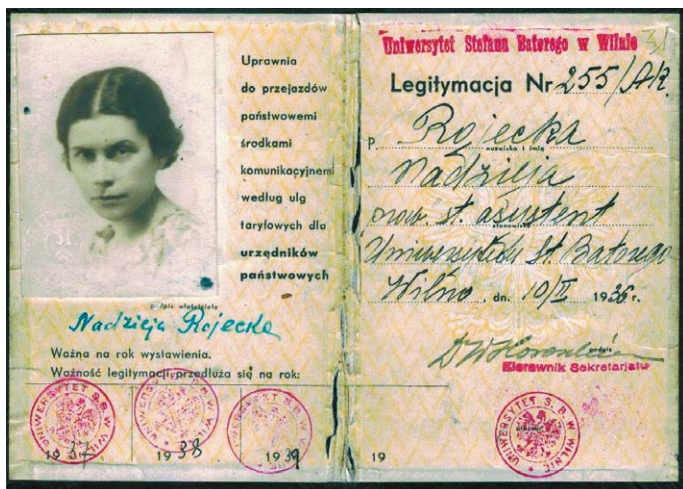 Uprawnia
do przejazdów
państwowemi
środkami
komunikacyjnemi
według ulg
taryfowych dla
urzędników
państwowych
podpis właściciela
Nadzieja Rojecka
Ważna na rok wystawienia.
Ważność legitymacji przedłuża się na rok:
UNIWERSYTET S.B. W WILNIE
1937
UNIWERSYTET S.B. W WILNIE
1938
UNIWERSYTET S.B. W WILNIE
1939
Uniwersytet Stefana Batorego w Wilnie
Legitymacja Nr 255/AR
P. Rojecka
nazwisko i imię
Nadzieja
st. asystent
stanowisko
Uniwersytetu St. Batorego
Wilno, dn. 10/II 1936 r.
podpis
Kierownik Sekretarjatu
UNIWERSYTET S.B. W WILNIE
19